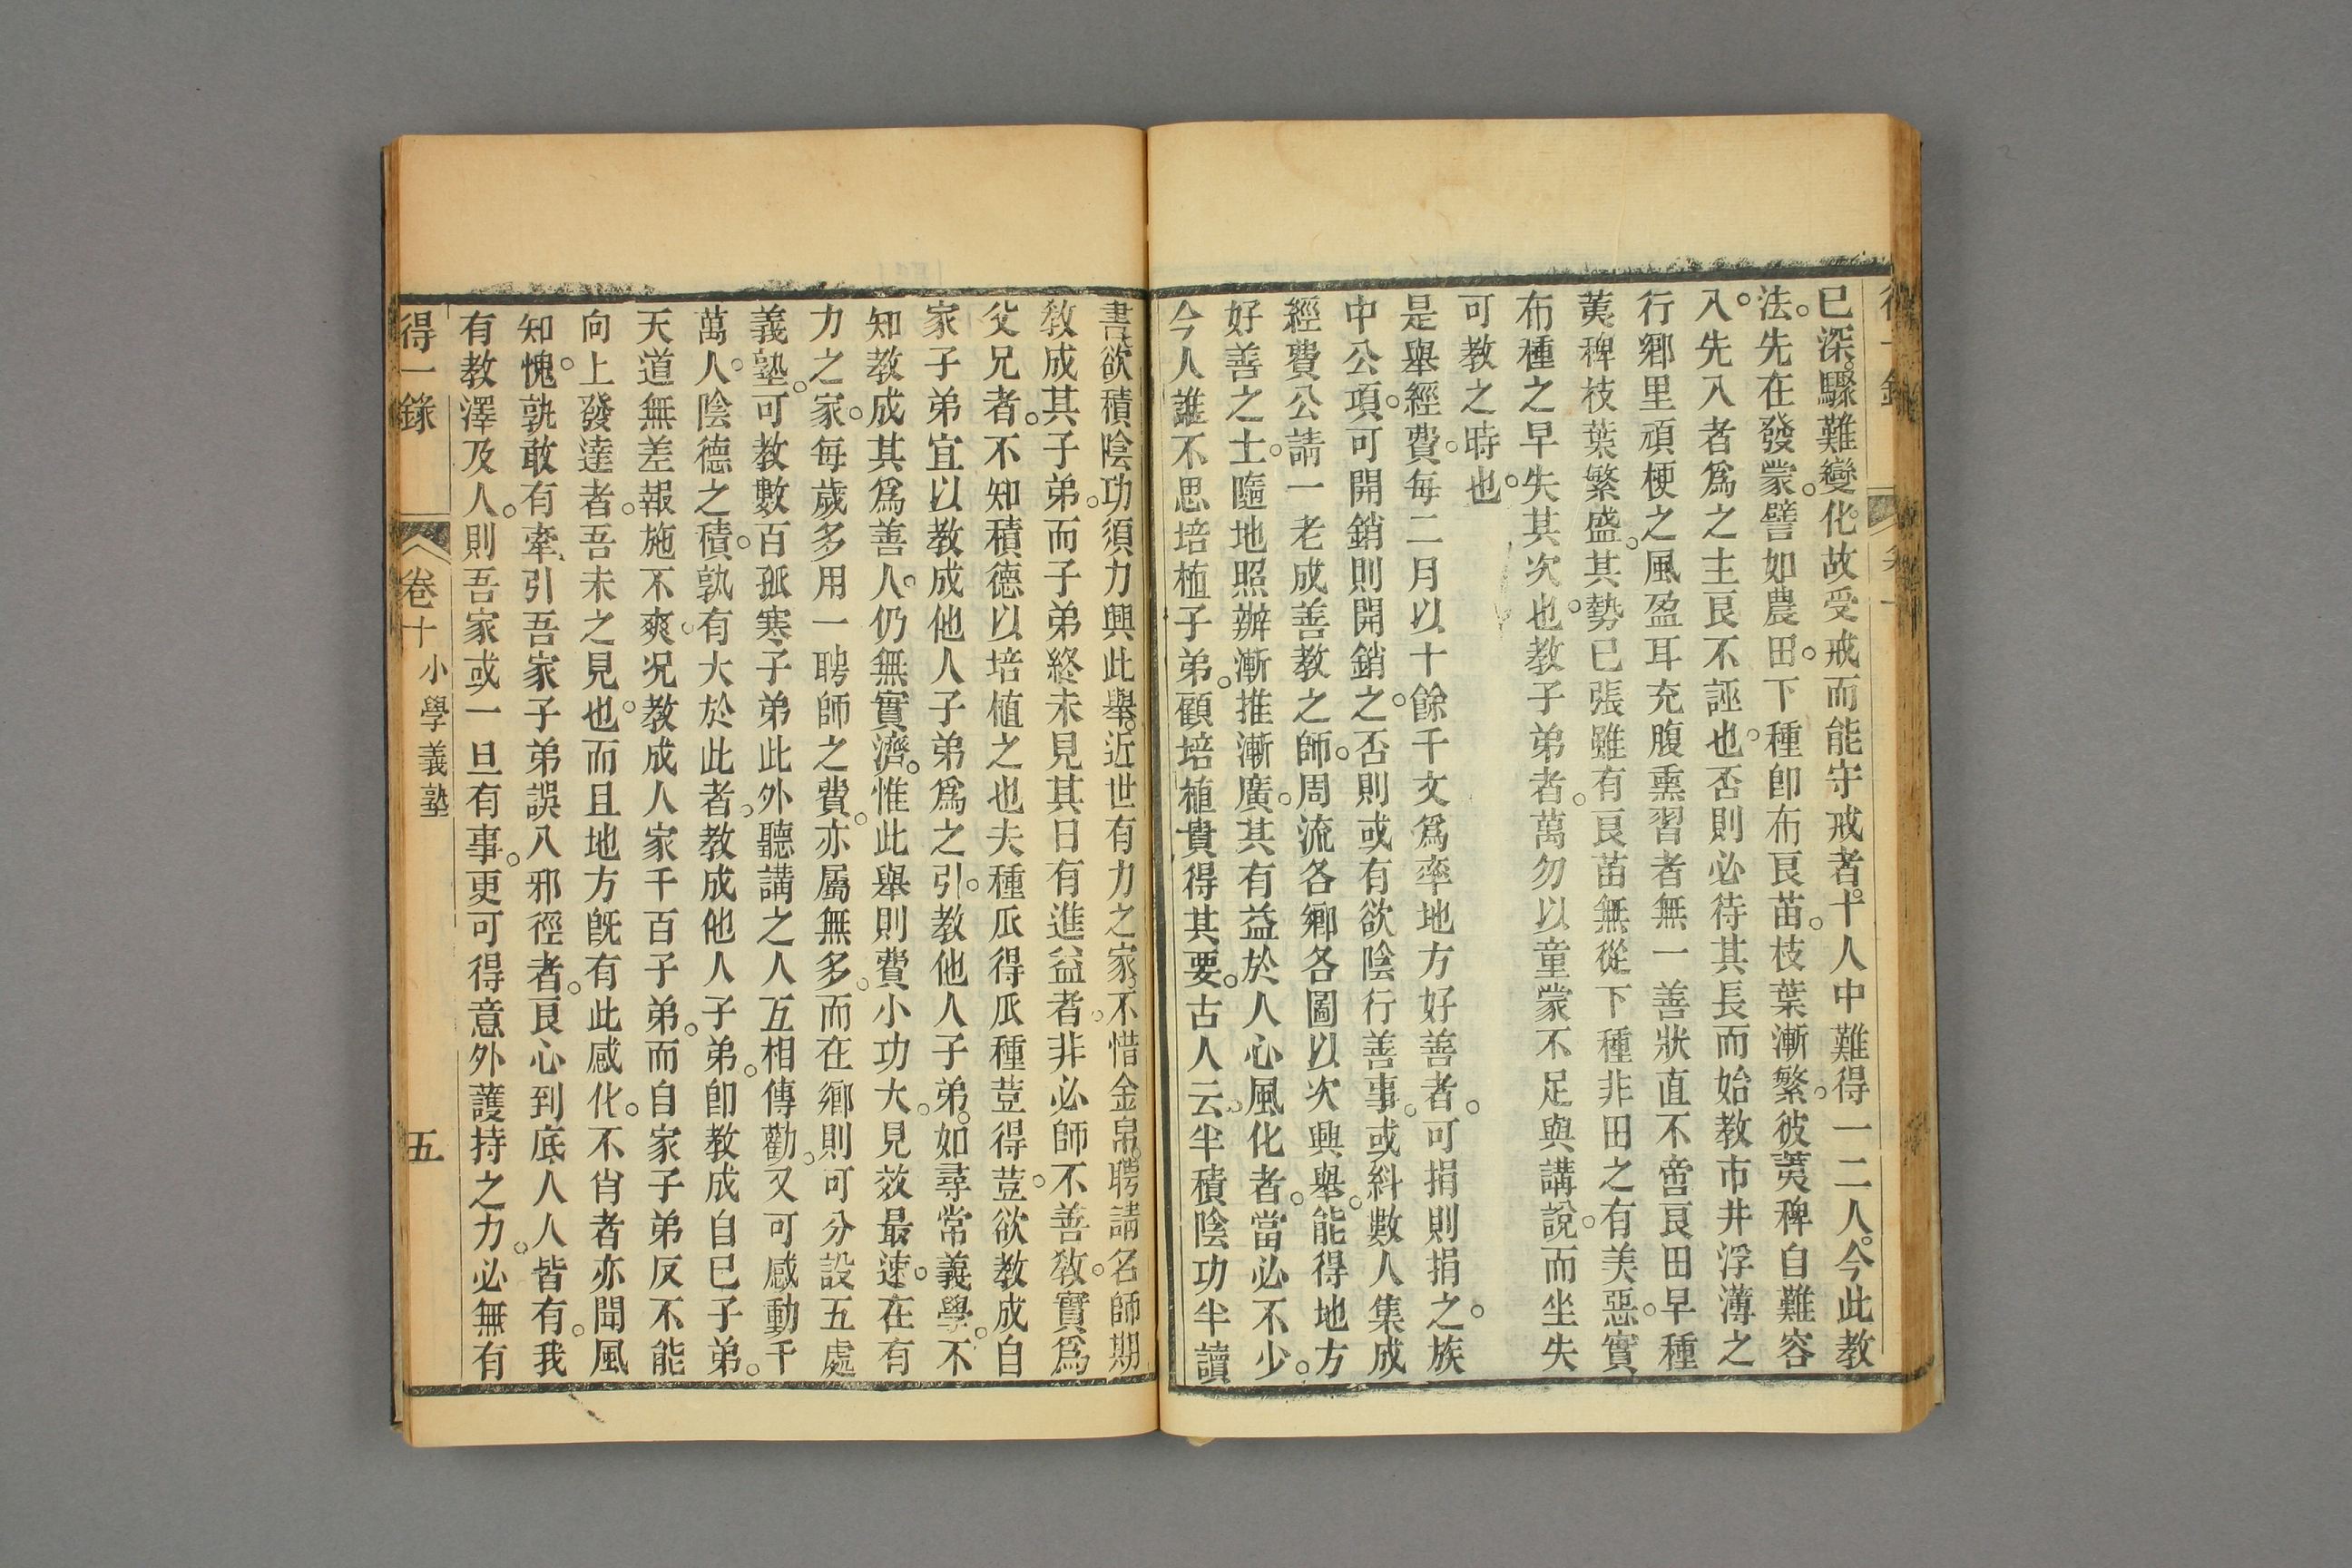 已深。驟難變化。故受戒而能守戒者。十人中難得一二人。今此教
法。先在發蒙。譬如農田。下種卽布良苗。枝葉漸繁。彼荑稗自難容
入。先入者爲之主。良不誣也。否則必待其長而始教。市井浮薄之
行。鄉里頑梗之風。盈耳充腹。熏習者無一善狀。直不啻良田早種
荑稗。枝葉繁盛。其勢已張。雖有良苗。無從下種。非田之有美惡。實
布種之早失其次也。教子弟者。萬勿以童蒙不足與講說。而坐失
可教之時也。
是舉經費。每二月以十餘千文爲率。地方好善者。可捐則捐之。族
中公項。可開銷則開銷之。否則或有欲陰行善事。或糾數人集成
經費。公請一老成善教之師。周流各鄉各圖。以次興舉。能得地方
好善之士。隨地照辦。漸推漸廣。其有益於人心風化者。當必不少。
今人誰不思培植子弟。顧培植貴得其要。古人云。半積陰功半讀
書。欲積陰功。須力興此舉。近世有力之家。不惜金帛。聘請名師。期
教成其子弟。而子弟終未見其日有進益者。非必師不善教。實爲
父兄者。不知積德以培植之也。夫種瓜得瓜。種荳得荳。欲教成自
家子弟。宜以教成他人子弟爲之引。教他人子弟。如尋常義學。不
知教成其爲善人。仍無實濟。惟此舉則費小功大。見效最速。在有
力之家。每歲多用一聘師之費。亦屬無多。而在鄉則可分設五處
義塾。可教數百孤寒子弟。此外聽講之人。互相傳勸。又可感動千
萬人。陰德之積。孰有大於此者。教成他人子弟。卽教成自己子弟。
天道無差。報施不爽。況教成人家千百子弟。而自家子弟反不能
向上發達者。吾未之見也。而且地方旣有此感化。不肖者亦聞風
知愧。孰敢有牽引吾家子弟。誤入邪徑者。良心到底人人皆有。我
有教澤及人。則吾家或一旦有事。更可得意外護持之力。必無有
得一錄 卷十 小學義塾 五